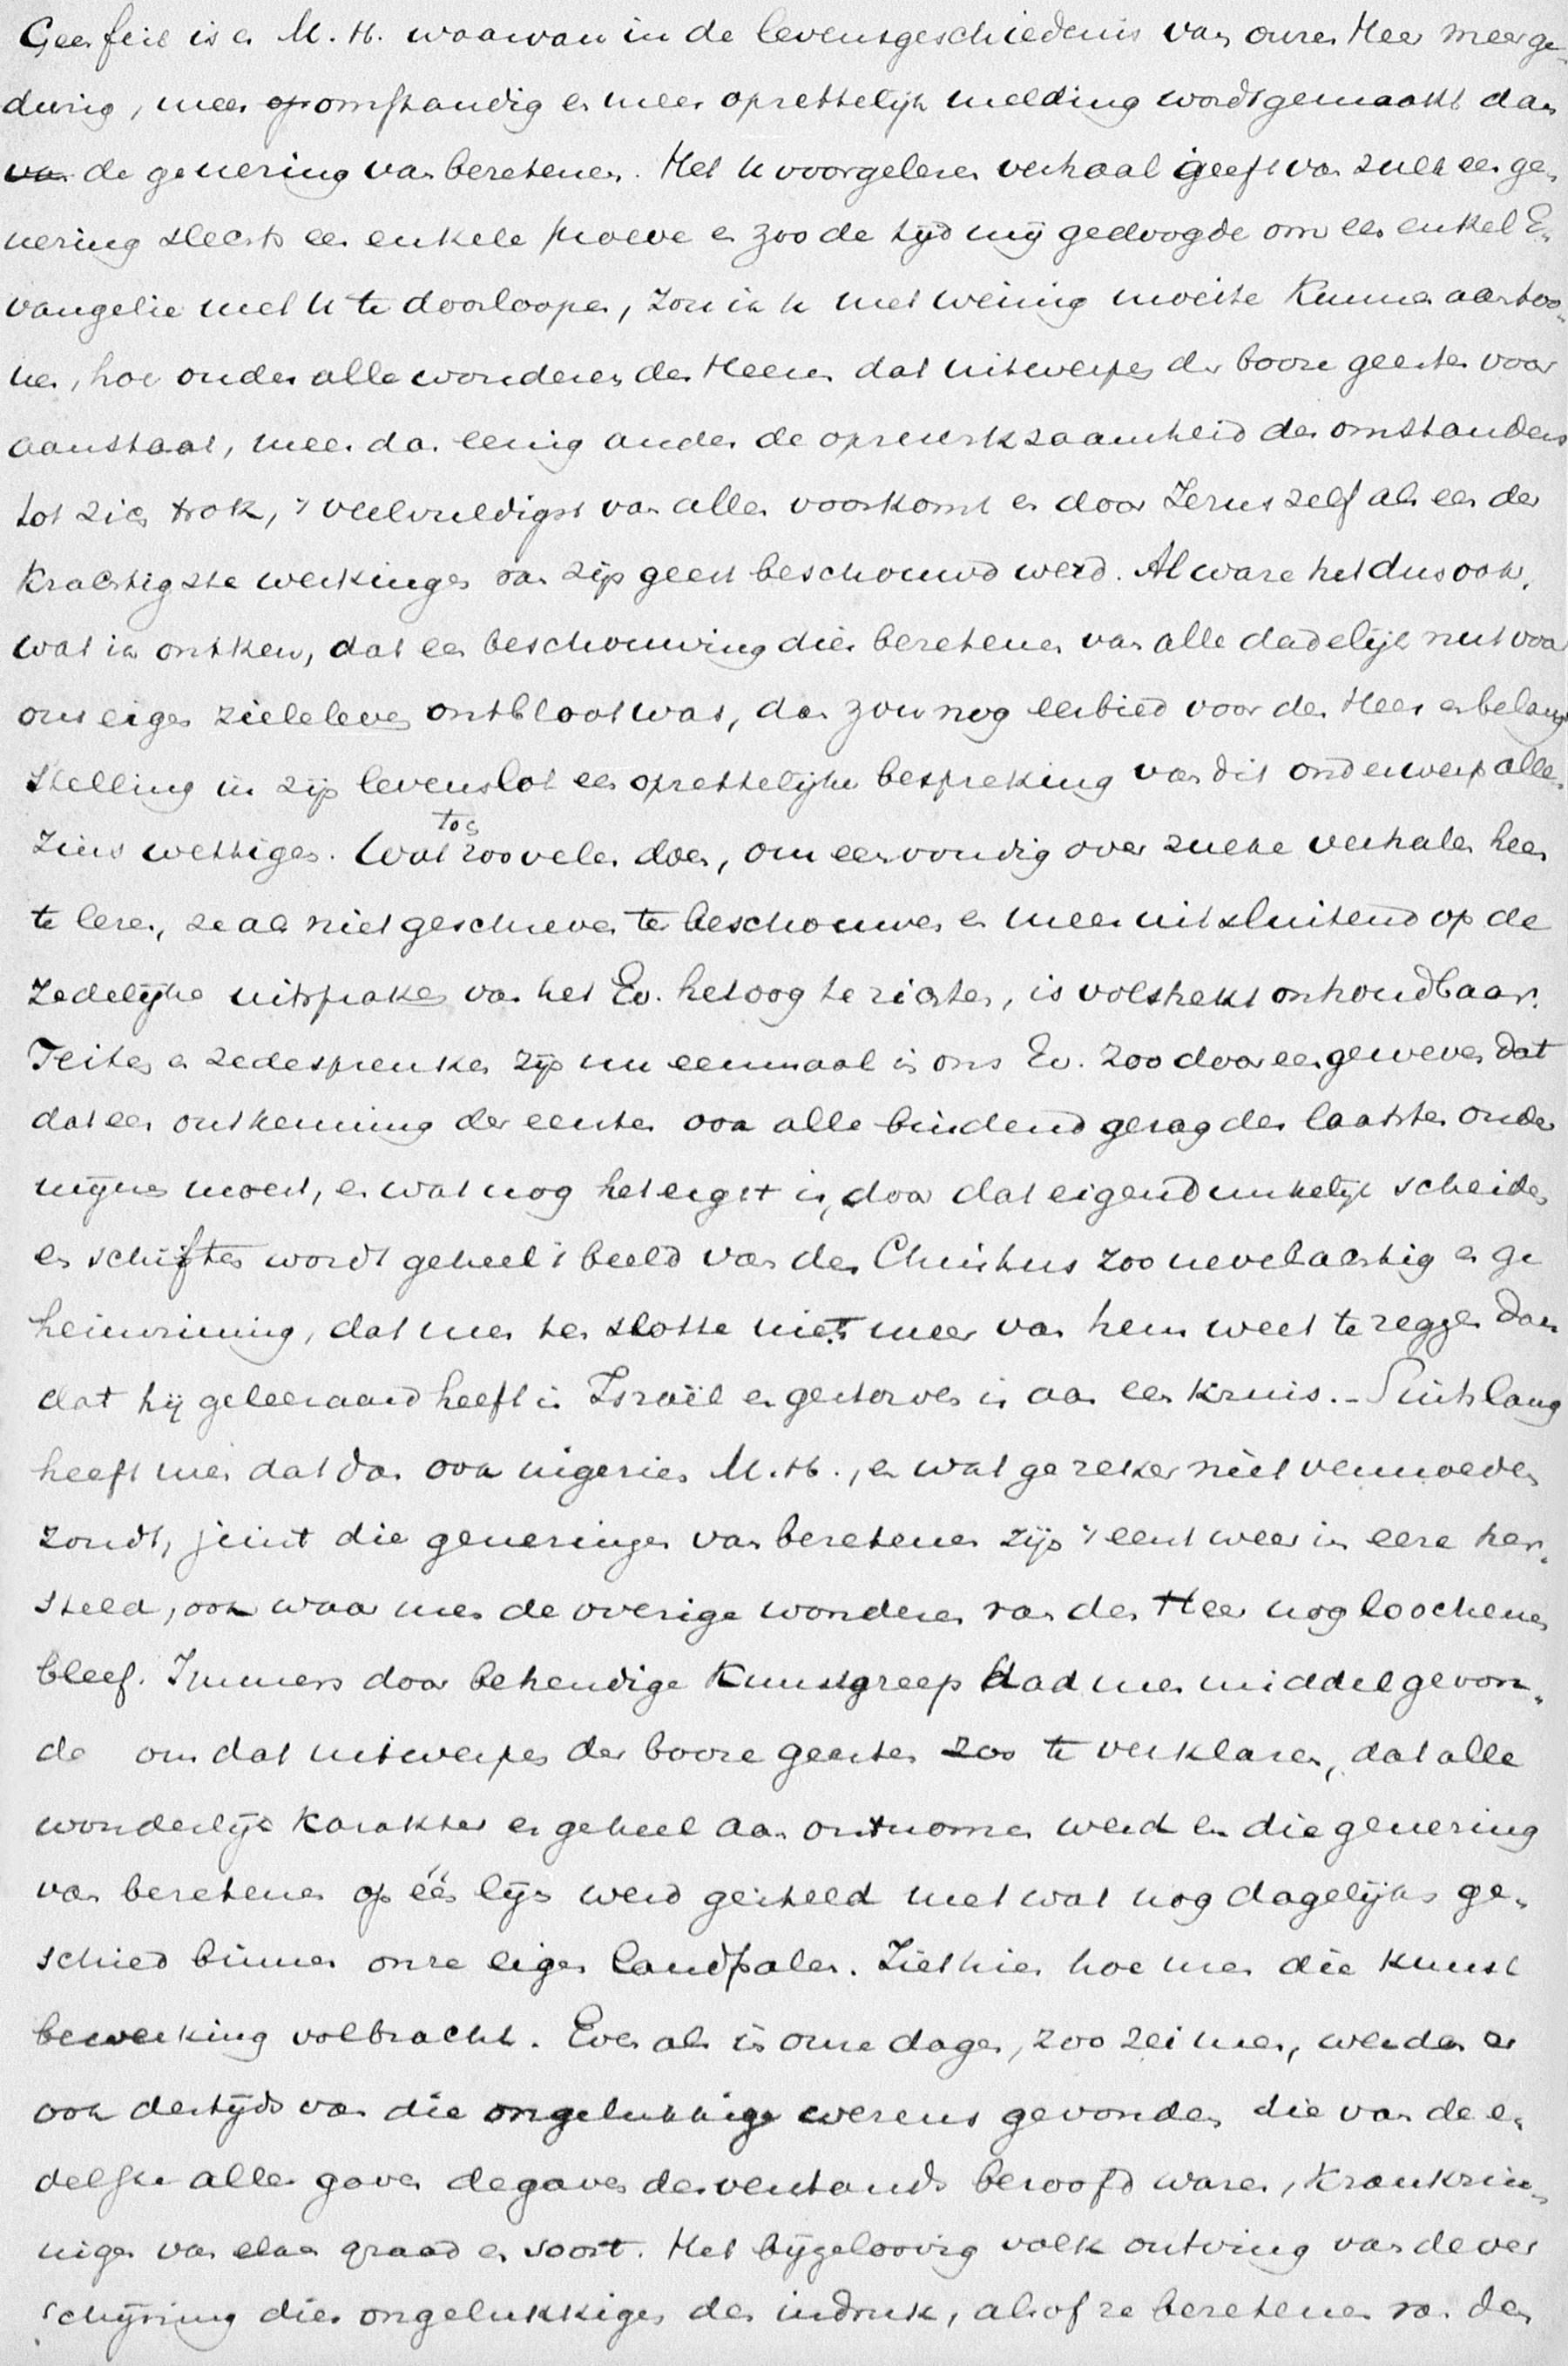 Geen feit is er M. H. waarvan in de levensgeschiedenis van onzen Heer meer ge-
durig, meer op omstandig en meer opzettelijk melding wordt gemaakt dan
van de genezing van bezetenen. Het U voorgelezen verhaal geeft van zulk een ge-
nezing slechts een enkele proeve en zoo de tijd mij gedoogde om een enkel E-
vangelie met U te doorloopen, zou ik U met weinig moeite kunnen aantoo-
nen, hoe onder alle wonderen des Heeren dat uitwerpen der booze geesten voor
aanstaat, meer dan eenig ander de opmerkzaamheid der omstanders
tot zich trok, 't veelvuldigst van allen voorkomt en door Jezus zelf als een der
krachtigste werkingen van zijn geest beschouwd werd. Al ware het dus ook,
wat ik ontken, dat een beschouwing dier bezetenen van alle dadelijk nut voor
ons eigen zieleleven ontbloot was, dan zou nog eerbied voor den Heer en belang
stelling in zijn levenslot een opzettelijke bespreking van dit onderwerp alle-
zins wettigen. Wat toch zoovelen doen, om eenvoudig over zulke verhalen heen
te lezen, ze als niet geschreven te beschouwen en meer uitsluitend op de
zedelijke uitspraken van het Ev. het oog te richten, is volstrekt onhoudbaar.
Feiten en zedespreuken zijn nu eenmaal in ons Ev. zoo dooreengeweven dat
dat een ontkenning der eersten ook alle bindend gezag der laatsten onder
mijnen moest, en wat nog het ergst is, door dat eigendunkelijk scheiden
en schiften wordt geheel 't beeld van den Christus zoo nevelachtig en ge
heimzinnig, dat men ten slotte niets meer van hem weet te zeggen dan
dat hij geleeraard heeft in Israël en gestorven is aan een kruis. - Sints lang
heeft men dat dan ook ingezien M. H., en wat ge zeker niet vermoeden
zoudt, juist die genezingen van bezetenen zijn 't eerst weer in eere her-
steld, ook waar men de overige wonderen van den Heer nog loochenen
bleef. Immers door behendige kunstgreep had men middel gevon-
de om dat uitwerpen der booze geesten zoo te verklaren, dat alle
wonderlijk karakter er geheel aan ontnomen werd en die genezing
van bezetenen op één lijn werd gesteld met wat nog dagelijks ge-
schied binnen onze eigen landpalen. Ziethier hoe men die kunst
bewerking volbracht. Even als in onze dagen, zoo zei men, werden er
ook destijds van die ongelukkige wezens gevonden die van de e-
delste aller gaven de gaven des verstands beroofd waren, krankzin-
nigen van elken graad en soort. Het bijgeloovig volk ontving van de ver
schijning dier ongelukkigen den indruk, alsof ze bezetenen van den